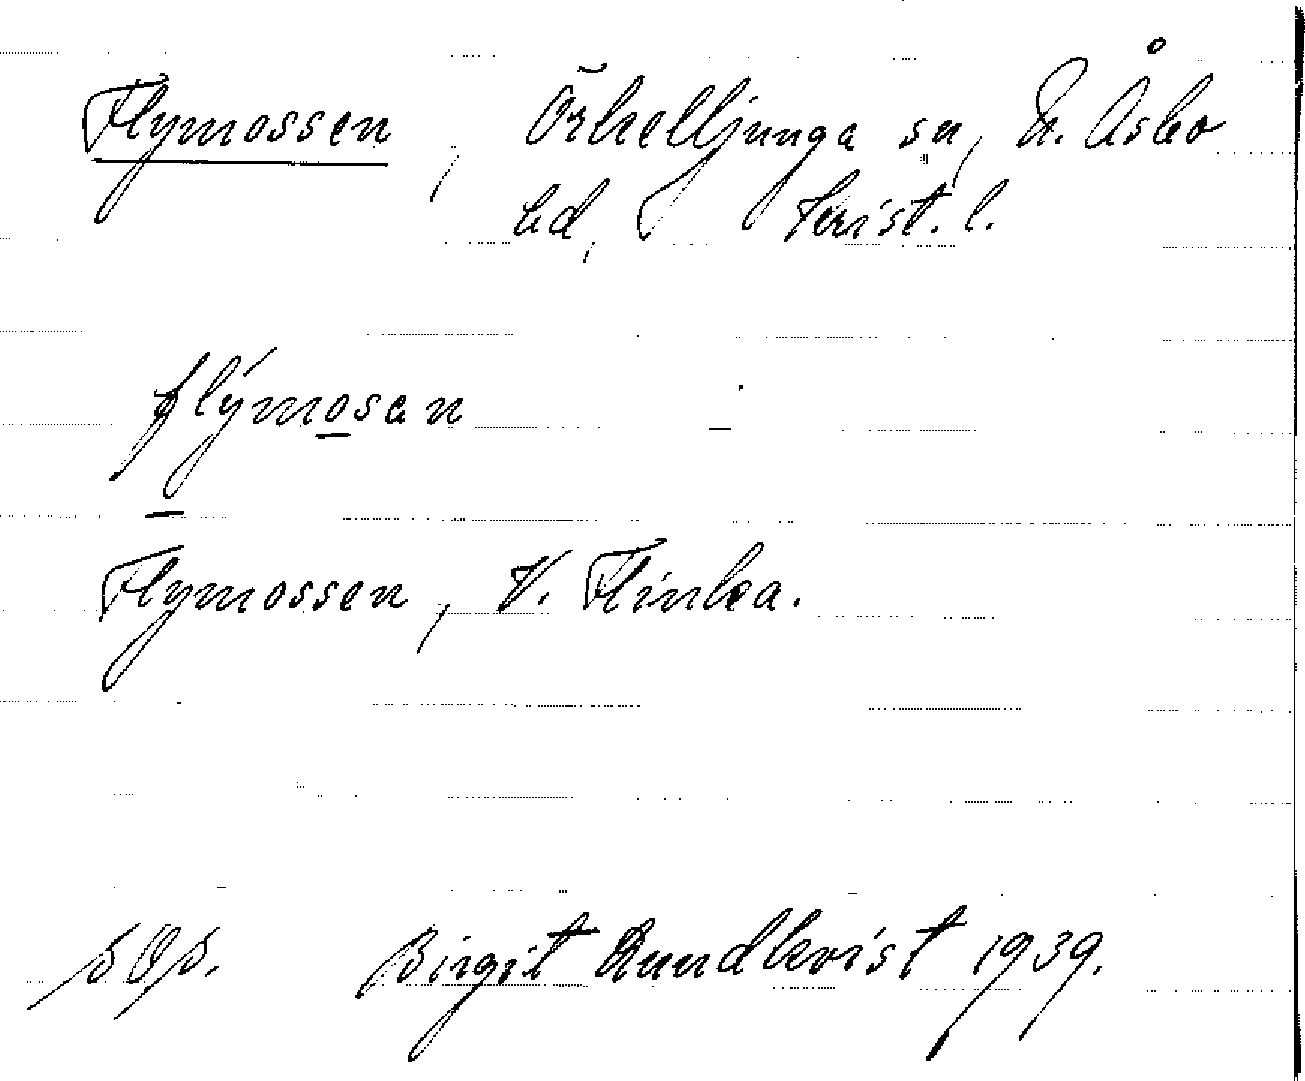 Flymossen, Örkelljunga sn, N. Åsbo
hd, Krist. l.
flýmosan
Flymossen, V. Flinka.
Birgit Rundkvist 1939.